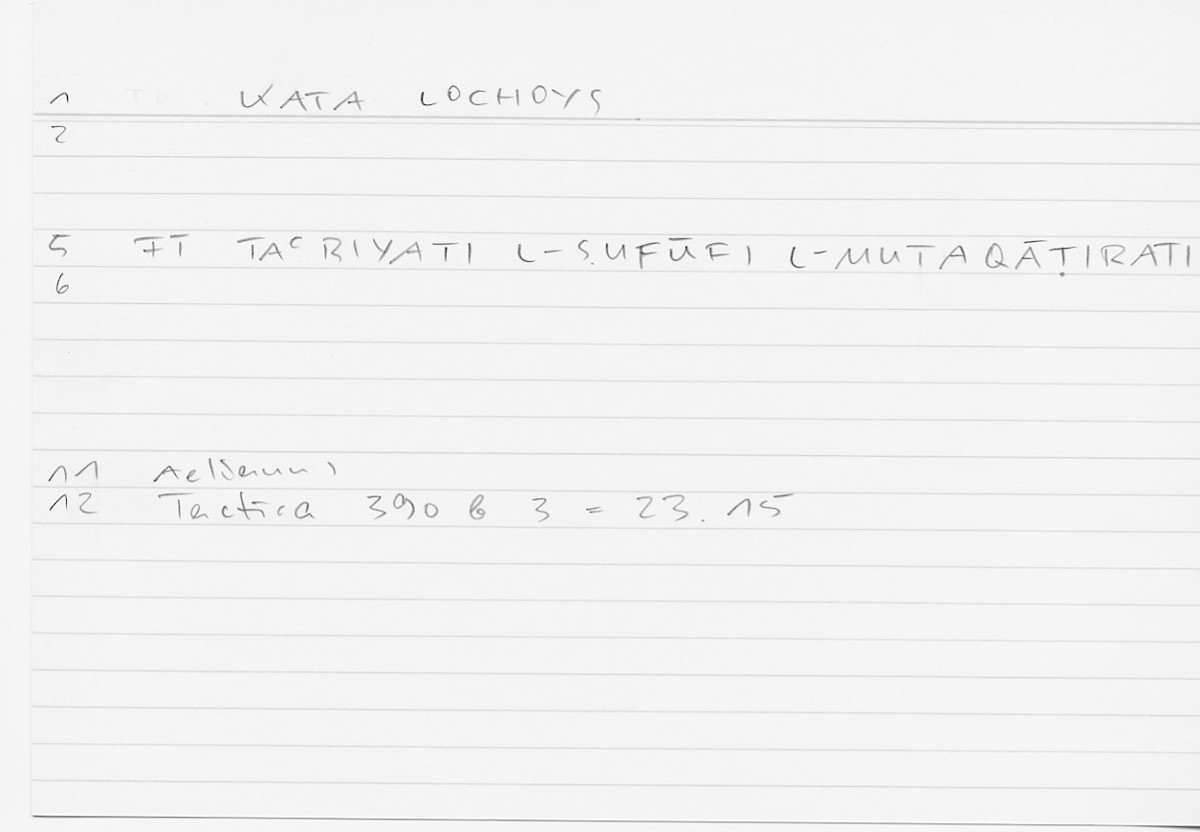 1 KATA LOCHOYS
2
5 FĪ TAʿBIYATI L-ṢUFŪFI L-MUTAQĀṬIRATI
6
11 Aelianus
12 Tactica 390 b 3 = 23.15